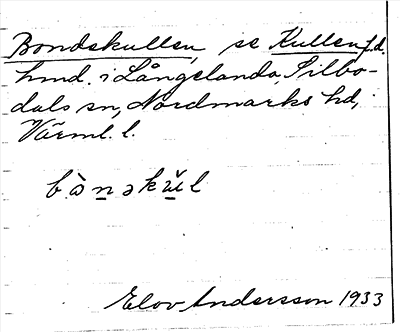 Bondskullen, se Kullen f.d.
hmd. i Långelanda, Silbo-
dals sn, Nordmarks hd,
Värml. l.
bònəkŭl
Elov Andersson 1933